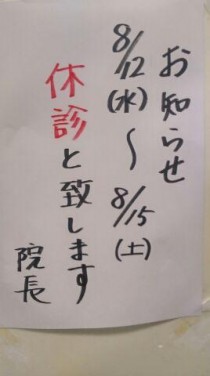 お知らせ
8/12(水)～8/15(土)
休診と致します
院長